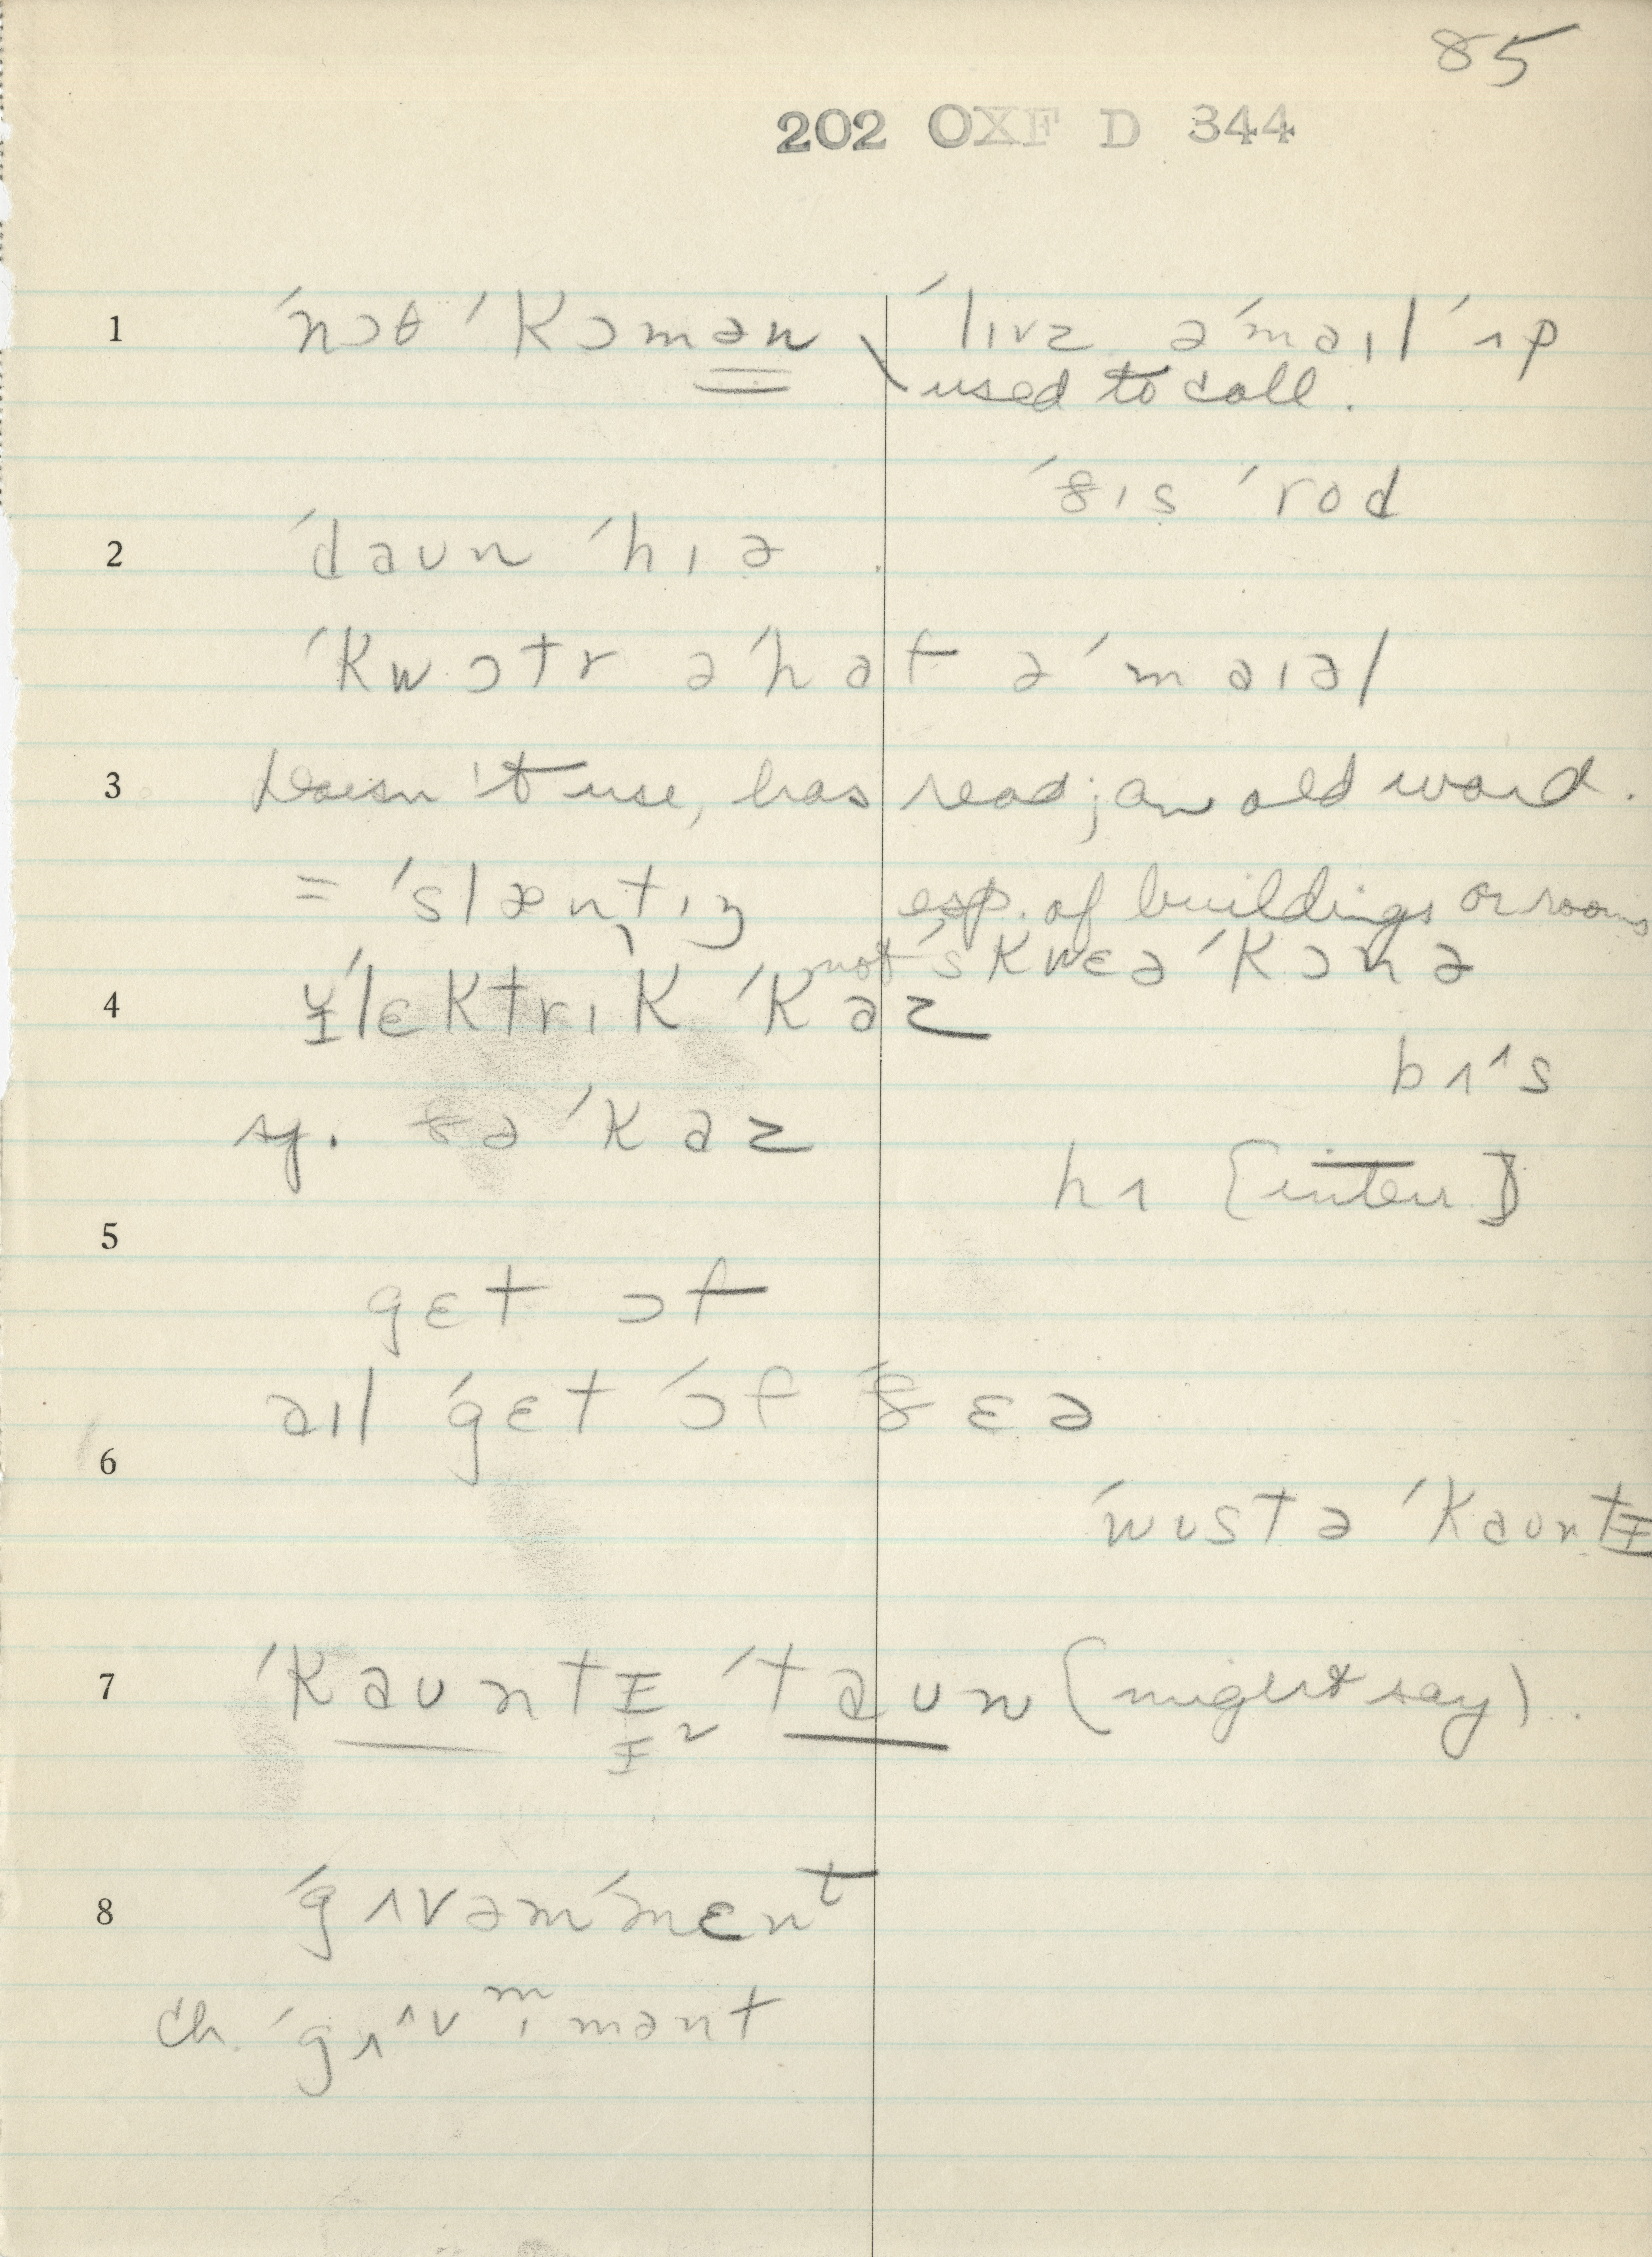 85
202 OXF D 344
1 ˈnɔθ ˈkɔmən ˈlɪvz əˈmaɪl ˈʌp
used to call.
ˈðɪs ˈrod
2 ˈdaun ˈhɪə
ˈkwɔtr əˈhaf əˈmaɪəl
3 Doesn't use, has read; an old word.
= ˈslæntɪŋ esp. of buildings or rooms
not ˈskwɛə ˈkɔnə
4 ˈlɛktrɪk ˈkaz
bʌˈs
sg. ðə ˈkaz
hʌ [inter.]
5
gɛt ɔf
aɪl ˈgɛt ˈɔf ˈðɛə
6
ˈwustə ˈkauntɪ
7 ˈkauntɪ ˈtaun (might say).
8 ˈgʌvəmˈmɛnt
ch. ˈgʌ^vmˌmənt